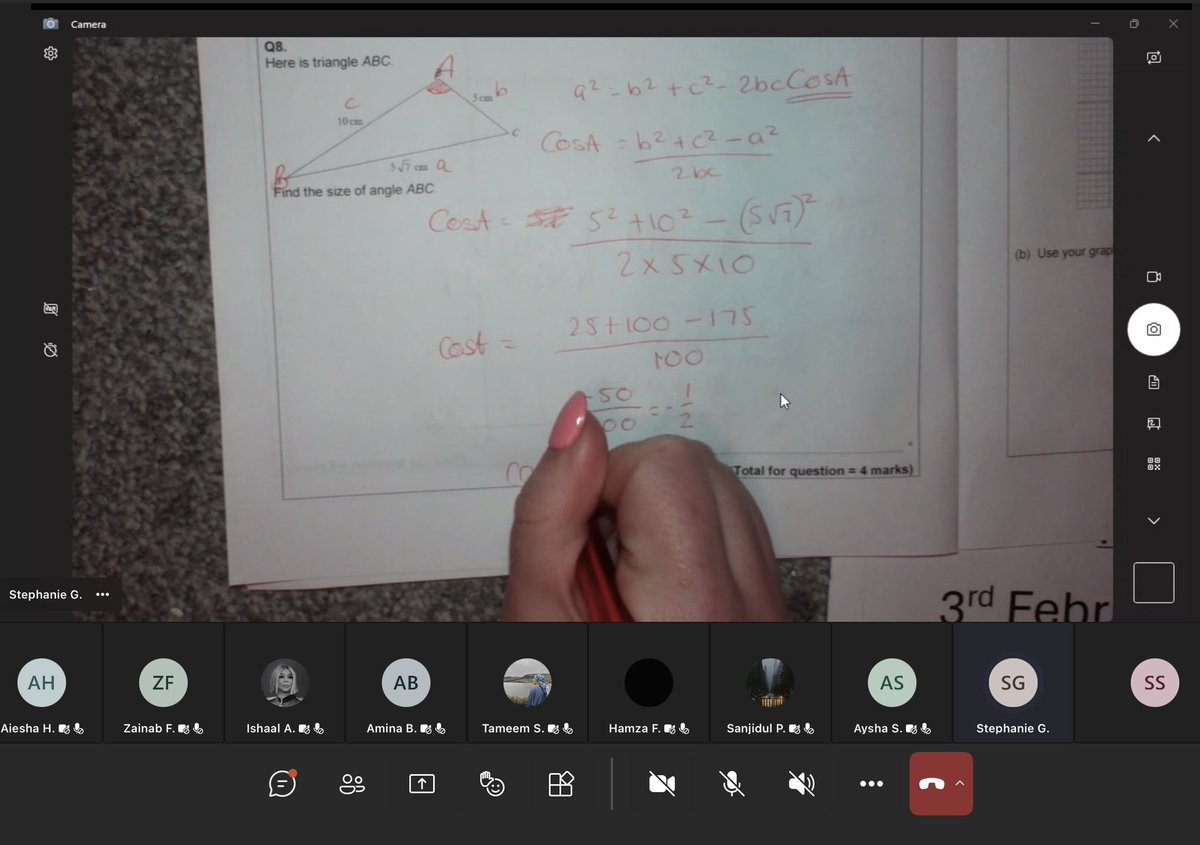 Camera
Q8.
Here is triangle ABC.
A
c
10 cm
5 cm b
C
B
5√7 cm a
Find the size of angle ABC.
a² = b² + c² - 2bc CosA
CosA = b² + c² - a²
2bc
CosA = 5² + 10² - (5√7)²
2 x 5 x 10
CosA = 25 + 100 - 175
100
-50 = - 1
00 2
(b) Use your grap
Total for question = 4 marks)
3rd Febr
Stephanie G. •••
AH
ZF
AB
AS
SG
SS
Aiesha H.
Zainab F.
Ishaal A.
Amina B.
Tameem S.
Hamza F.
Sanjidul P.
Aysha S.
Stephanie G.